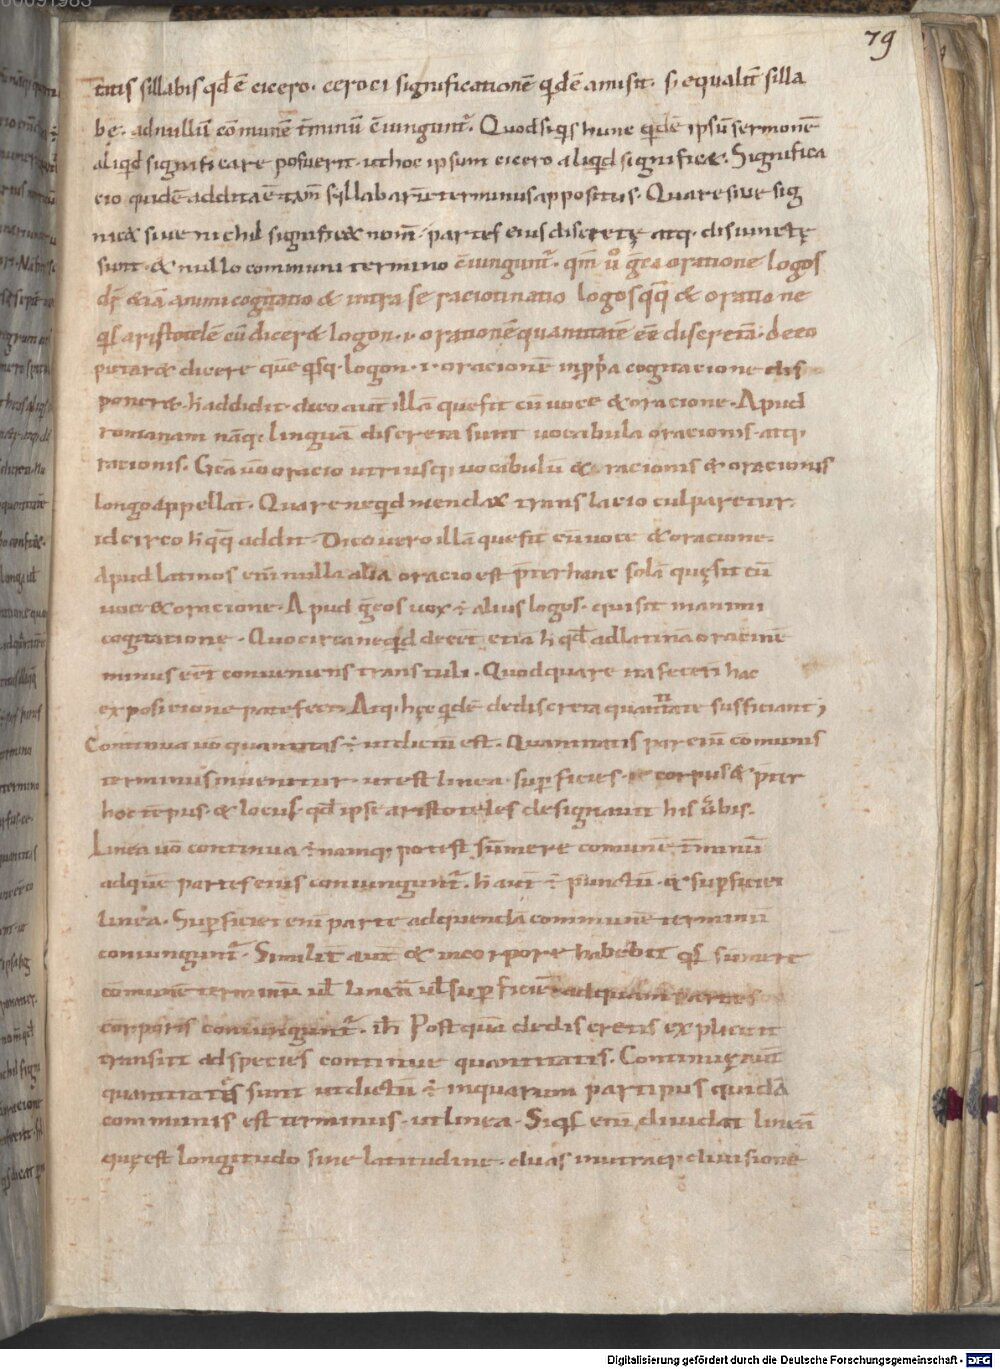 79
titis sillabis qd̄ ē cicero. ceroci significationē qidē amisit. si equalit̄ silla
be. ad nullū cōmunē t̄minū c̄iungunt᷑. Quod siquis hunc qidē ipsū sermonē
aliqid significare posuerit. ut hoc ipsum cicero aliqid significet. Significa
cio quidē addita ē tam̄ syllabarū terminus appositus. Quare siue sig
nicet siue nichil significet nom̄. partes eius discretę atq. disiunctę
sunt. & nullo communi termino c̄iungunt᷑. qm̄ ů gc̄a oratione logos
dr̄ & iā animi cogitatio & intra se raciotinatio logos qq̄ & oratio ne
qis aristotelē cū dicer& logon .i. orationē quantitatē eē discretā. de eo
putar& dicere quē qisq. logon .i. oracionē in ppa cogitacione dis
poner&. h̄ addidit. dico aut̄ illā que fit cū uoce & oracione. Apud
romanam nāq. linguā discreta sunt uocabula oracionis. atq.
racionis. Gc̄a ůo oracio utriusq. uocabulū & racionis & oracionis
longo appellat. Quare neqid mendax translacio culparetur.
idcirco h̄ qq̄ addit. Dico uero illā que fit cū uoce & oracione.
Apud latinos eni nulla alia oracio est p̄ter hanc solā quę sit cū
uoce & oracione. Apud gc̄os uox ÷ alius logos. qui sit in animi
cogitatione. Quocirca neqid deeēt etiā h̄ qd̄ ad latinā oracinē
minus eēt conueniens transtuli. Quod quare ita fecerī hac
exposicione patefeci. Atq. hęc qidē de discreta quantitate sufficiant;
Continua ůo quantitas ÷ ut dictū est. Quantitatis parciū comunis
terminus inuenitur. ut est linea. superficies. & corpus & p̄ter
hoc tēpus. & locus. qd̄ ipse aristoteles designauit his ůbis.
Linea ůo continua ÷ namq. potest sūmere comunē t̄minū
ad quē partes eius coniungunt᷑. h̄ aut̄ ÷ punctū. & superficiei
linea. Superficiei eni parte ad quendā commune terminū
coniungunt᷑. Similit̄ aut̄ & in corpore habebit qis sumere
comunē terminū ul̄ lineā ul̄ superficiē ad quam partes
corporis coniungunt᷑. ih̄ Postquā de discretis explicuit
transiit ad species continue quantitatis. Continuę aut̄
quantitates sunt ut dictū ÷ in quarum partipus quidā
communis est terminus. ut linea. Siqis eni diuidat lineā
quę est longitudo sine latitudine. duas in utraq. diuisione
Digitalisierung gefördert durch die Deutsche Forschungsgemeinschaft - DFG